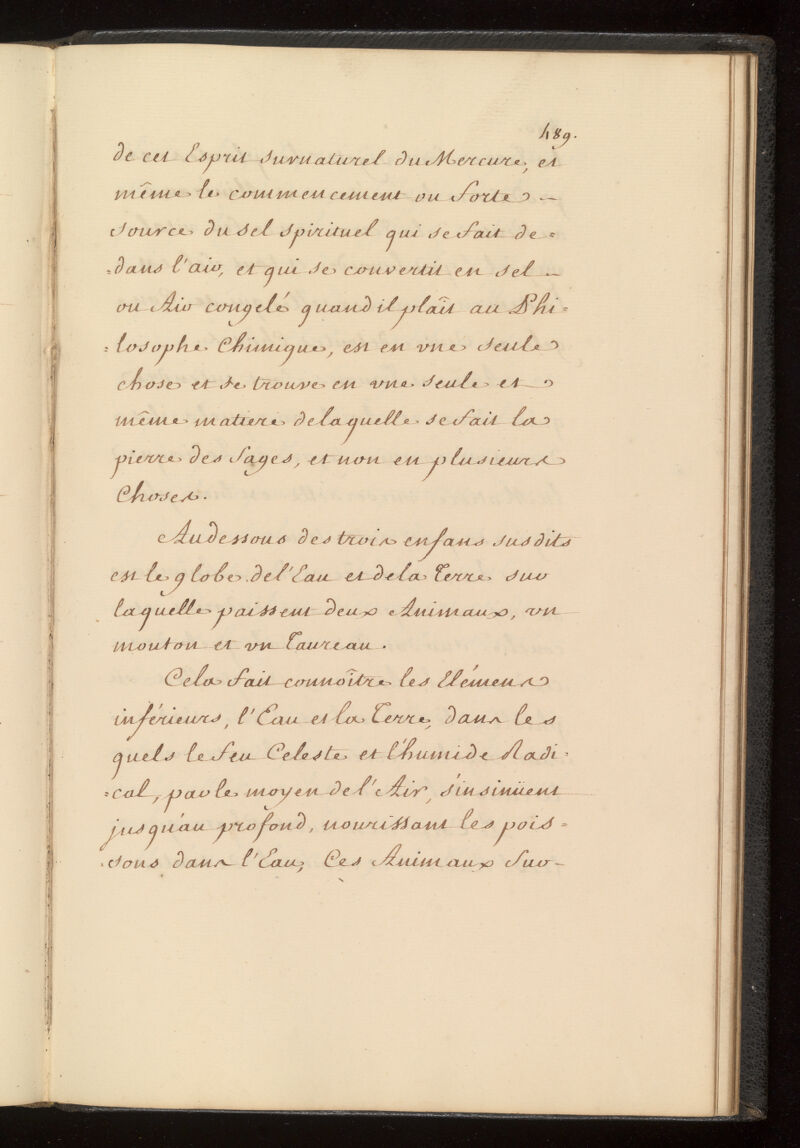 489.
de cet Esprit surnaturel du Mercure, et
même le commencement ou forte
source du sel spirituel qui se fait de=
=dans l'air, et qui se convertit en sel
ou Air congelé quand il plaît au Phi=
=losophe Chimique, est en vne seule
chose et se trouve en vne seule et
même matiere de laquelle se fait la
pierre des Sages, et non en plusieurs
Choses.
Au dessous des trois enfans susdits
est le globe de l'Eau et de la Terre sur
laquelle paissent deux Animaux, vn
mouton et vn Taureau.
Cela fait connoître les Elémens
inférieurs, l'Eau et la Terre, dans les
quels le feu Celeste et l'humide Radi=
=cal, par le moyen de l'Air, s'insinüent
jusqu'au profond, nourissant les pois=
=sons dans l'Eau; Ces Animaux sur